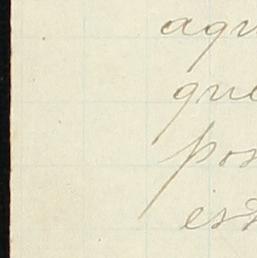 aqu
que
pos
est